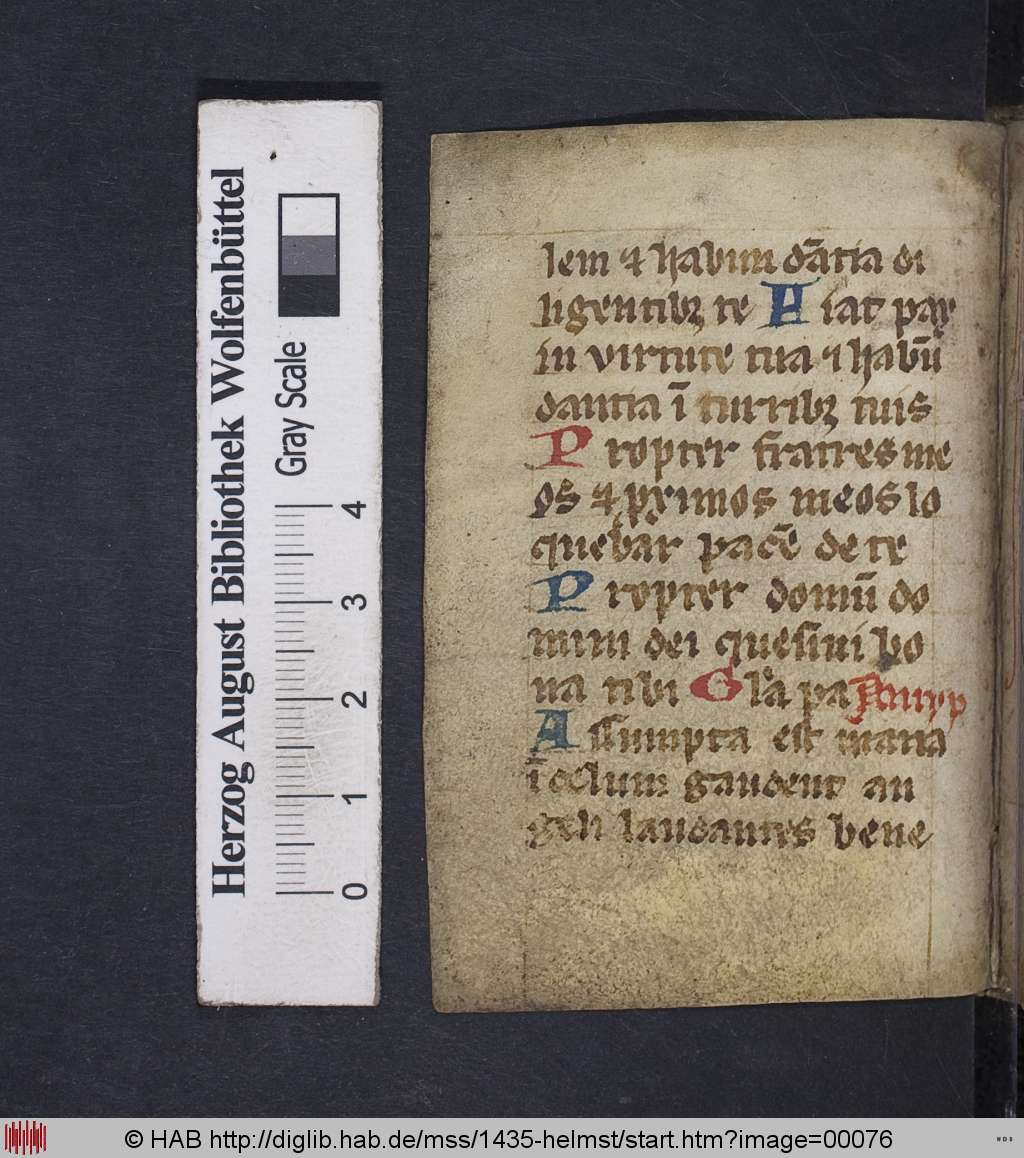 Herzog August Bibliothek Wolfenbüttel
Gray Scale
0 1 2 3 4
lem ⁊ habundātia di
ligentibꝫ te Fiat pax
in virtute tua ⁊ habū
dantia ī turribꝫ tuis
Propter fratres me
os ⁊ pximos meos lo
quebar pacē de te
Propter domū do
mini dei quesiui bo
na tibi Gla pa
Assumpta est maria
ī celum gaudent an
geli laudantes bene
© HAB http://diglib.hab.de/mss/1435-helmst/start.htm?image=00076